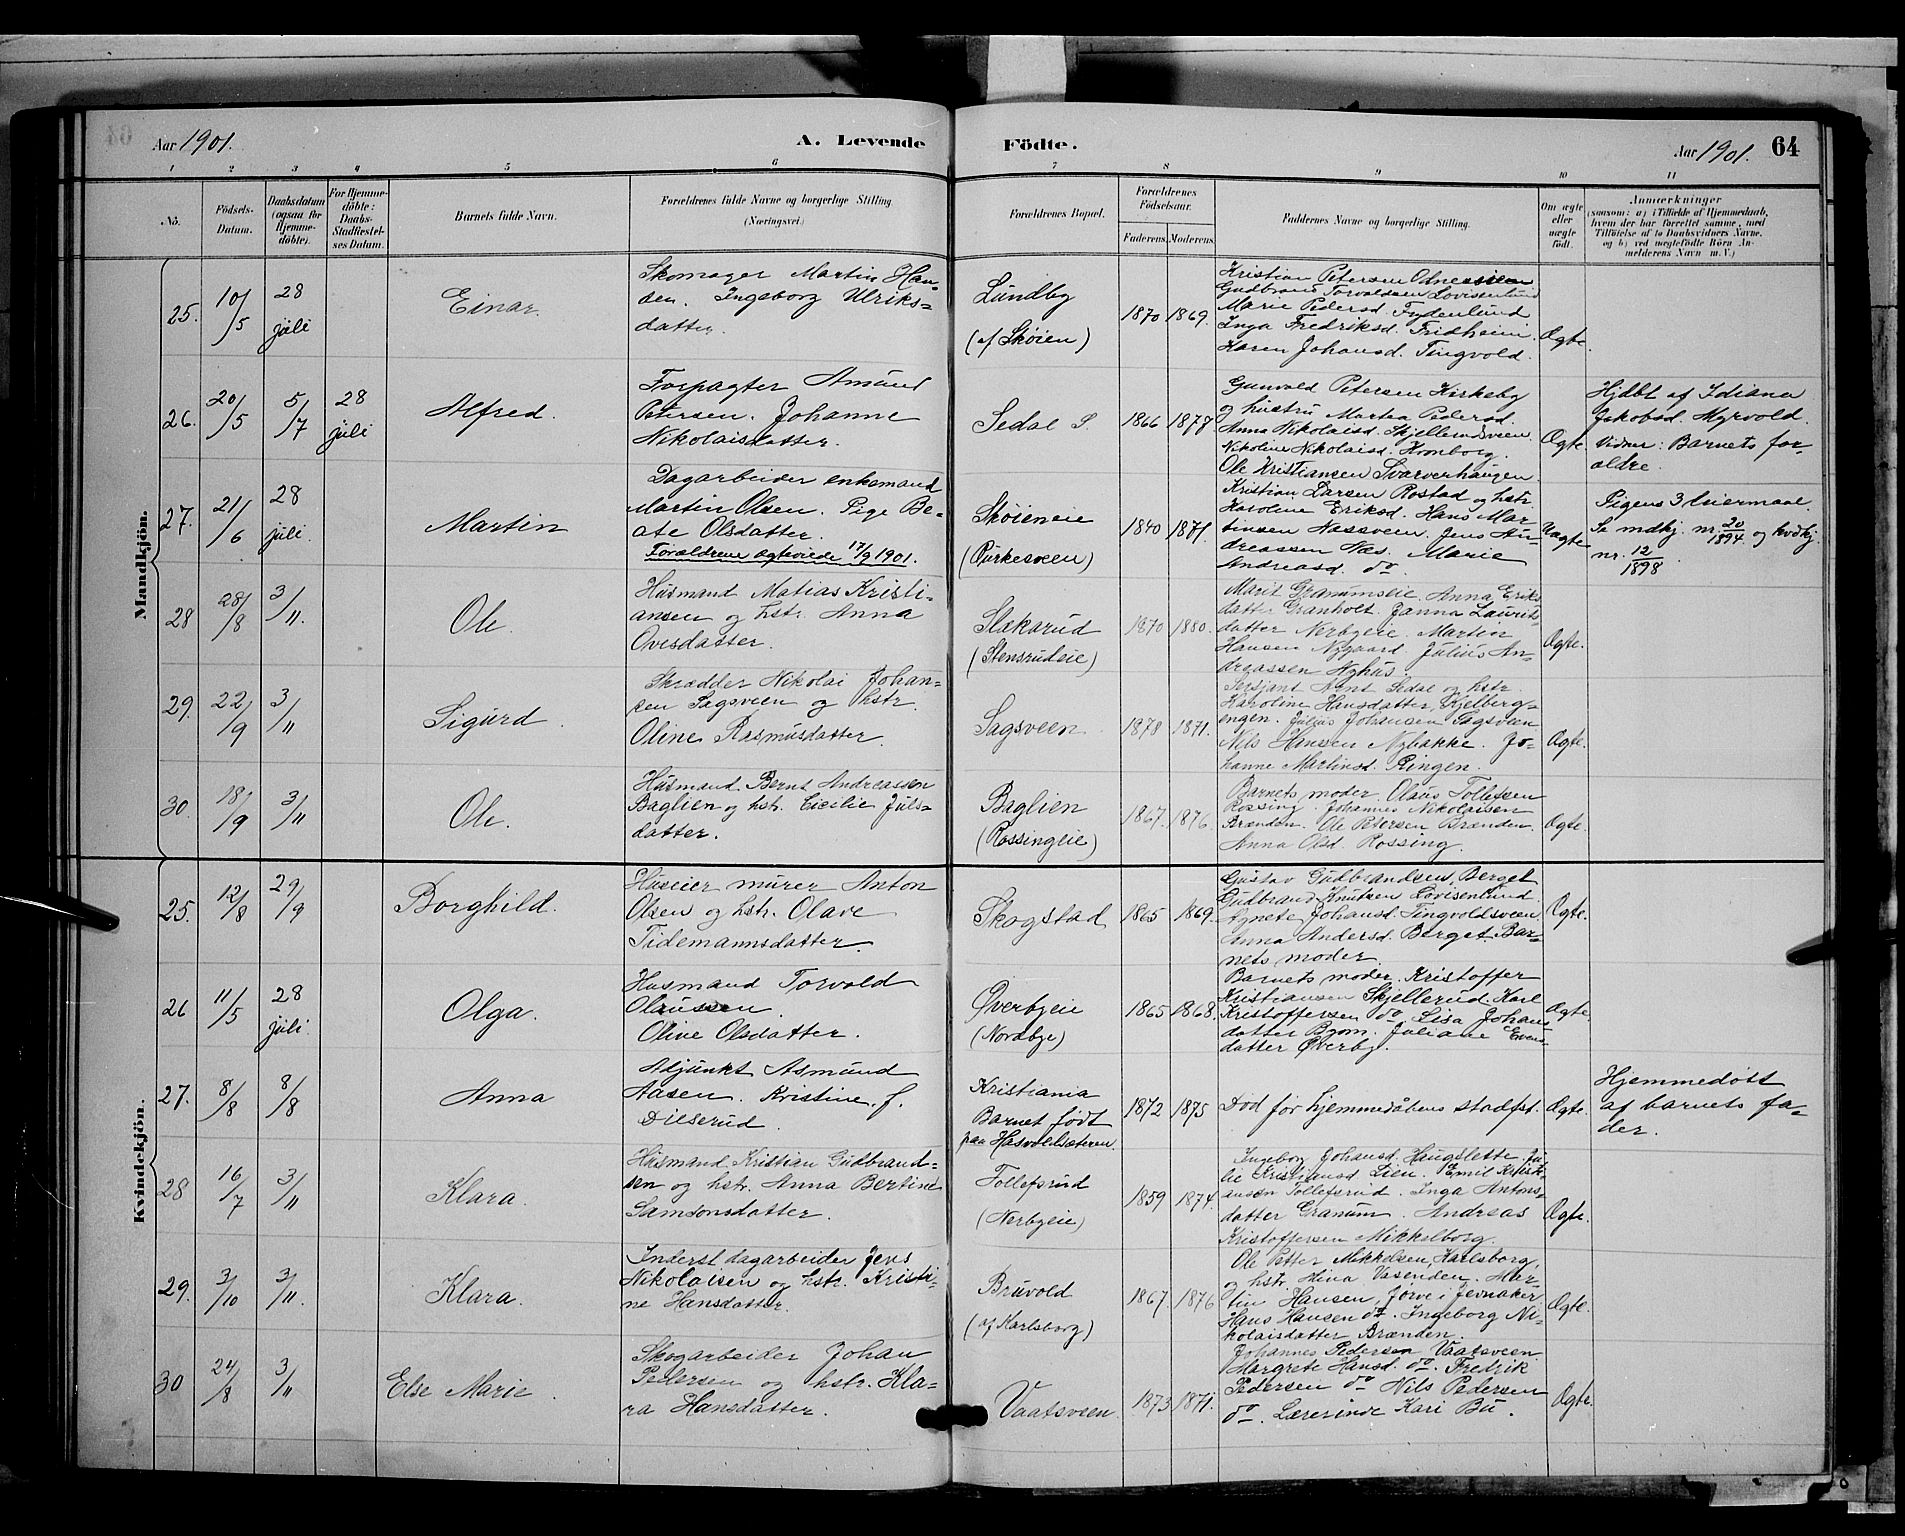 Aar 1901. A. Levende Födte. Aar 1901. 64
1 2 3 4 5 6 7 8 9 10 11
No.
Födsels-
Datum.
Daabsdatum
(ogsaa for
Hjemme-
döbte).
For Hjemme-
döbte:
Daabs-
Stadfæstel-
ses Datum.
Barnets fulde Navn.
Forældrenes fulde Navne og borgerlige Stilling.
(Næringsvei.)
Forældrenes Bopæl.
Forældrenes
Födselsaar.
Faderens. Moderens.
Faddernes Navne og borgerlige Stilling.
Om ægte
eller
uægte
födt.
Anmærkninger
(saasom: a) i Tilfælde af Hjemmedaab,
hvem der har forrettet samme, med
Tilföielse af to Daabsvidners Navne.
og b) ved uægtefödte Börn An-
melderens Navn m. V.)
Mandkjön.
25. 10/5 28 juli
Einar.
Skomager Martin Han-
sen. Ingeborg Ulriks-
datter.
Lundby
(af Skøien)
1870 1869.
Kristian Petersen
Gudbrand Torvaldsen Lovisenlund
Marie Pedersd. Frydenlund
Inga Fredriksd. Fridheim.
Karen Johansd. Tingvold.
Ægte.
26. 20/5 5/7 28 juli
Alfred.
Forpagter Amund
Petersen. Johanne
Nikolaisdatter.
Sedal S.
1866 1877
Gunvold Petersen Kirkeby
og hustru Martea Pedersd.
Anna Nikolaisd. Skjellerudsveen
Nikoline Nikolaisd. Kronborg.
Ole Kristiansen Svarverhaugen
Ægte.
Hjdbt af Idiana
Jakobsd. Myrvold.
Vidner: Barnets for-
ældre.
27. 21/6 28 juli.
Martin
Dagarbeider enkemand
Martin Olsen. Pige Be-
ate Olsdatter.
Forældrene ægteviede 17/9 1901.
Skøieneie
(Purkesveen)
1840 1871.
Kristian Larsen Rostad og hstr.
Karoline Eriksd. Hans Mar-
tinsen Næssveen. Jens An-
dreassen Næs. Marie
Andreasd. do
Uægte
Pigens 3 leiermaal.
Se mdkj. nr. 20/1894 og kvdkj.
nr. 12/1898
28 28/8 3/11.
Ole.
Husmand Matias Kristi-
ansen og hstr. Anna
Ovesdatter.
Slækarud
(Stensrudeie)
1870 1880.
Marit Grammseie. Anna Eriks
datter Granholt. Janna Laurits-
datter Nerbyeie. Martin
Hansen Nygaard. Julius An-
dreassen Nyhus.
Ægte.
29. 22/9 3/11
Sigurd.
Skrædder Nikolai Johan-
sen Sagsveen og hstr.
Oline Rasmusdatter.
Sagsveen
1878 1871.
Sersjant Bernt Sedal og hstr.
Karoline Hansdatter, Kjelberg-
engen. Julius Johansen Sagsveen
Nils Hansen Nybakke. Jo-
hanne Martinsd. Ringen.
Ægte.
30. 18/9 3/11
Ole.
Husmand Bernt Andreassen
Baglien og hstr. Cicilie Juls-
datter.
Baglien
(Rossingeie)
1867. 1876.
Barnets moder. Olaus Tollefsen
Rossing. Johannes Nikolaisen
Brænden. Ole Petersen Brænden.
Anna Olsd. Rossing.
Ægte.
Kvindekjön.
25. 12/8 29/9
Borghild.
Huseier murer Anton
Olsen og hstr. Olave
Tidemannsdatter.
Skogstad
1865 1869.
Gustav Gudbrandsen, Berget
Gudbrand Knutsen Lovisenlund
Agnete Johansd. Tingvoldsveen
Anna Andersd. Berget. Bar-
nets moder.
Ægte.
26 11/5 28 juli.
Olga.
Husmand Torvald
Olaussen.
Oline Olsdatter.
Øverbyeie
(Nordbye)
1865 1868.
Barnets moder, Kristoffer
Kristiansen Skjellerud. Karl
Kristoffersen do Lisa Johans-
datter Byom. Juliane Evens-
datter Øverby.
Ægte.
27. 8/8 8/8
Anna
Adjunkt Asmund
Aasen. Kristine, f.
Diserud.
Kristiania
Barnet født
paa Hasvoldsæteren.
1872 1875
Død før hjemmedåbens stadfst.
Ægte.
Hjemmedøbt
af barnets fa-
der.
28 16/7 3/11
Klara.
Husmand Kristian Gudbrand-
sen og hstr. Anna Bertine
Samsonsdatter.
Tollefsrud
(Nerbyeie)
1859 1874.
Ingeborg Johansd. Haugslette. Ju-
lie Kristiansd Lien. Emil Kristi-
ansen Tollefsrud. Inga Antons-
datter Granum. Andreas
Kristoffersen Mikkelborg.
Ægte.
29. 3/10 3/11.
Klara.
Inderst dagarbeider Jens
Nikolaisen og hstr. Kristi-
ne Hansdatter.
Bruvold
(af Karlsborg)
1867. 1876
Ole Petter Mikkelsen, Karlsborg,
og hstr. Mina Vasenden. Mar-
tin Hansen, Jørve i Jevnaker
Hans Hansen do. Ingeborg Ni-
kolaisdatter Brænden.
Ægte.
30 24/8 3/11
Else Marie.
Skogarbeider Johan
Pedersen og hstr. Kla-
ra Hansdatter.
Vaatsveen
1873 1871.
Johannes Pedersen Vaatsveen
Margrete Hansd. do. Fredrik
Pedersen do Nils Pedersen
do. Lærerinde Kari Bu.
Ægte.